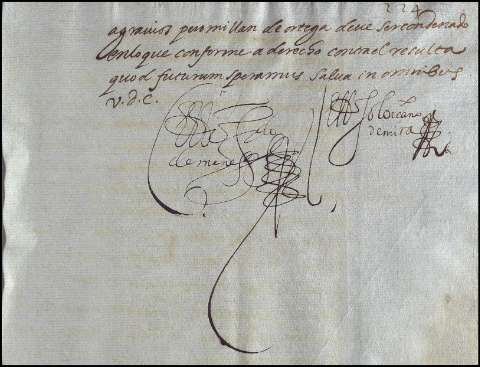 224
agrauios pues millan de ortega deue ser condenado
en lo que conforme a derecho contra el resulta
quod futurum speramus salua in omnibus
V. d. C.
de mene